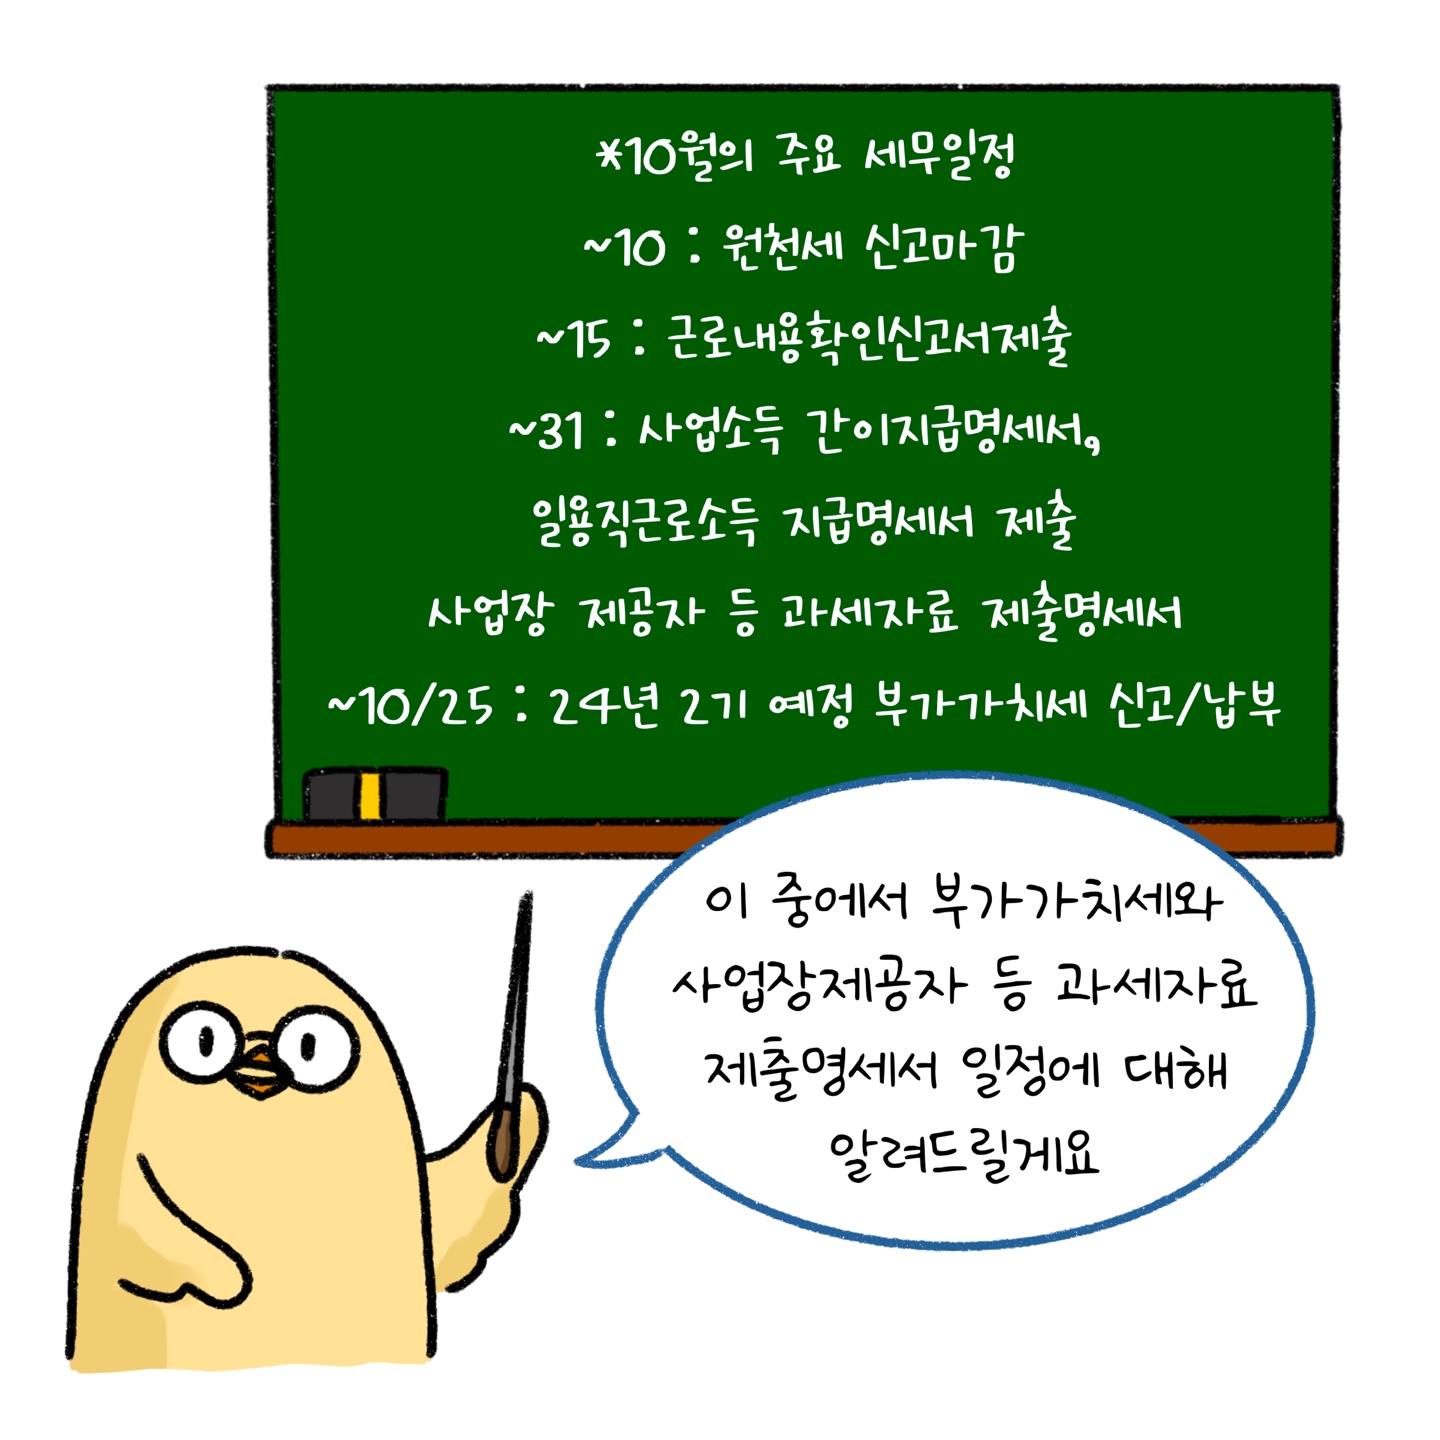 *10월의 주요 세무일정
~10 : 원천세 신고마감
~15 : 근로내용확인신고서제출
~31 : 사업소득 간이지급명세서,
일용직근로소득 지급명세서 제출
사업장 제공자 등 과세자료 제출명세서
~10/25 : 24년 2기 예정 부가가치세 신고/납부
이 중에서 부가가치세와
사업장제공자 등 과세자료
제출명세서 일정에 대해
알려드릴게요